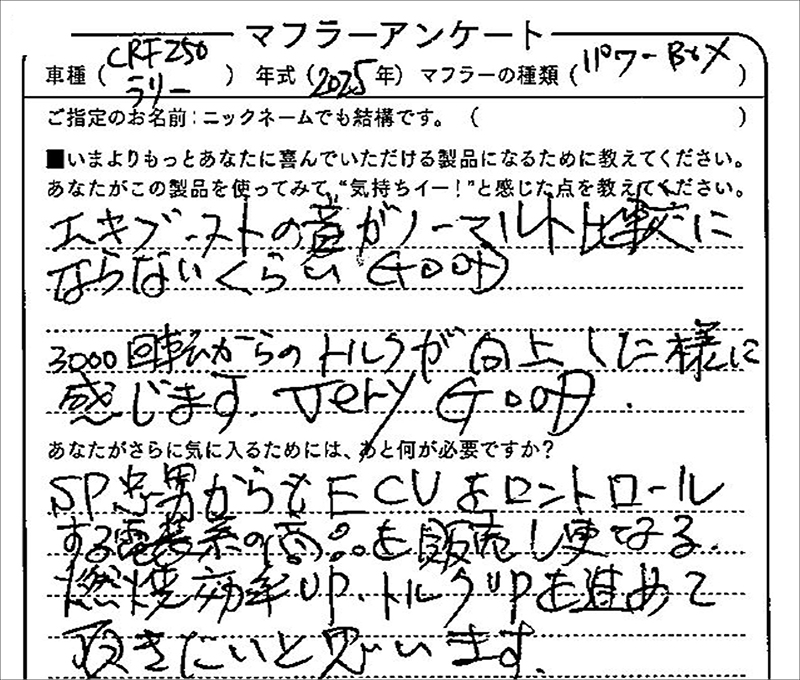 マフラーアンケート
車種（CRF250ラリー） 年式（2025年） マフラーの種類（パワーBOX）
ご指定のお名前：ニックネームでも結構です。（ ）
■いまよりもっとあなたに喜んでいただける製品になるために教えてください。
あなたがこの製品を使ってみて、“気持ちイー！”と感じた点を教えてください。
エキゾーストの音がノーマルト比較に
ならないくらい GOOD
3000回転からのトルクが向上した様に
感じます. Very GOOD.
あなたがさらに気に入るためには、あと何が必要ですか？
SP忠男からもECUをコントロール
する電装系の商品を販売し更なる
燃焼効率UP.トルクUPを進めて
頂きたいと思います.